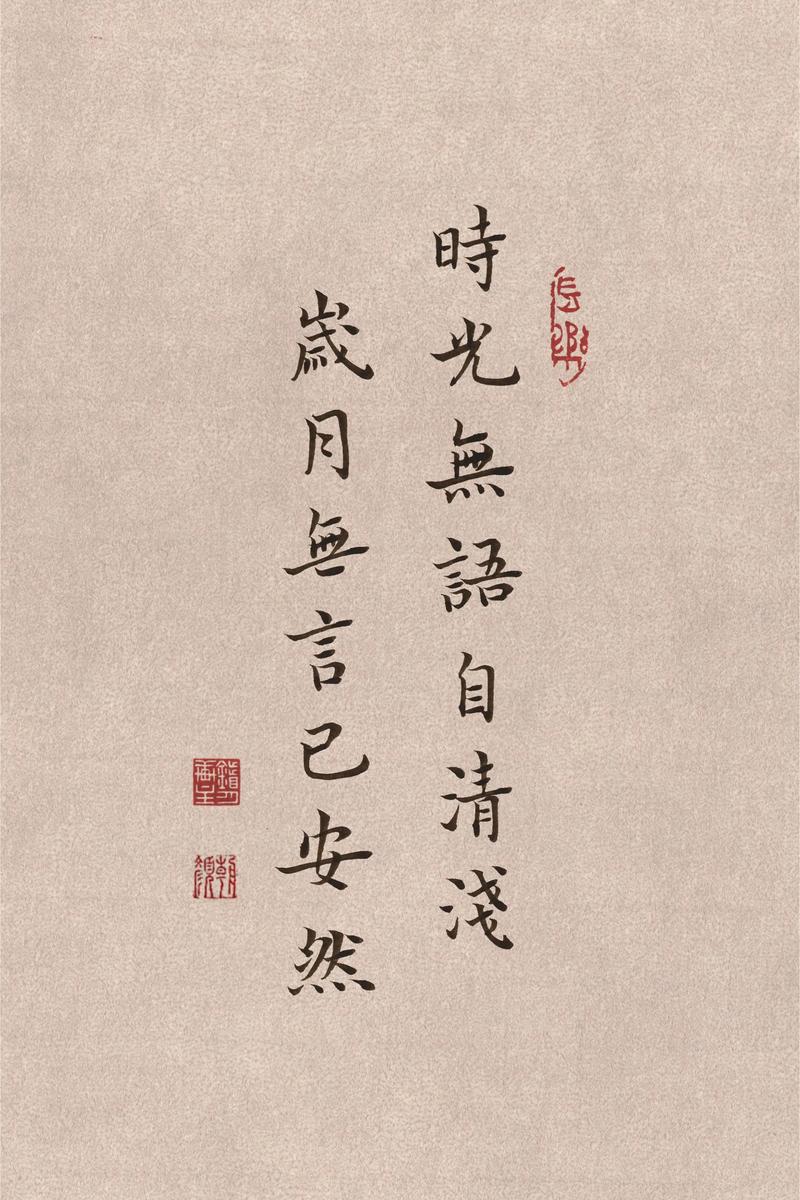 時光無語自清淺
歲月無言已安然
長樂